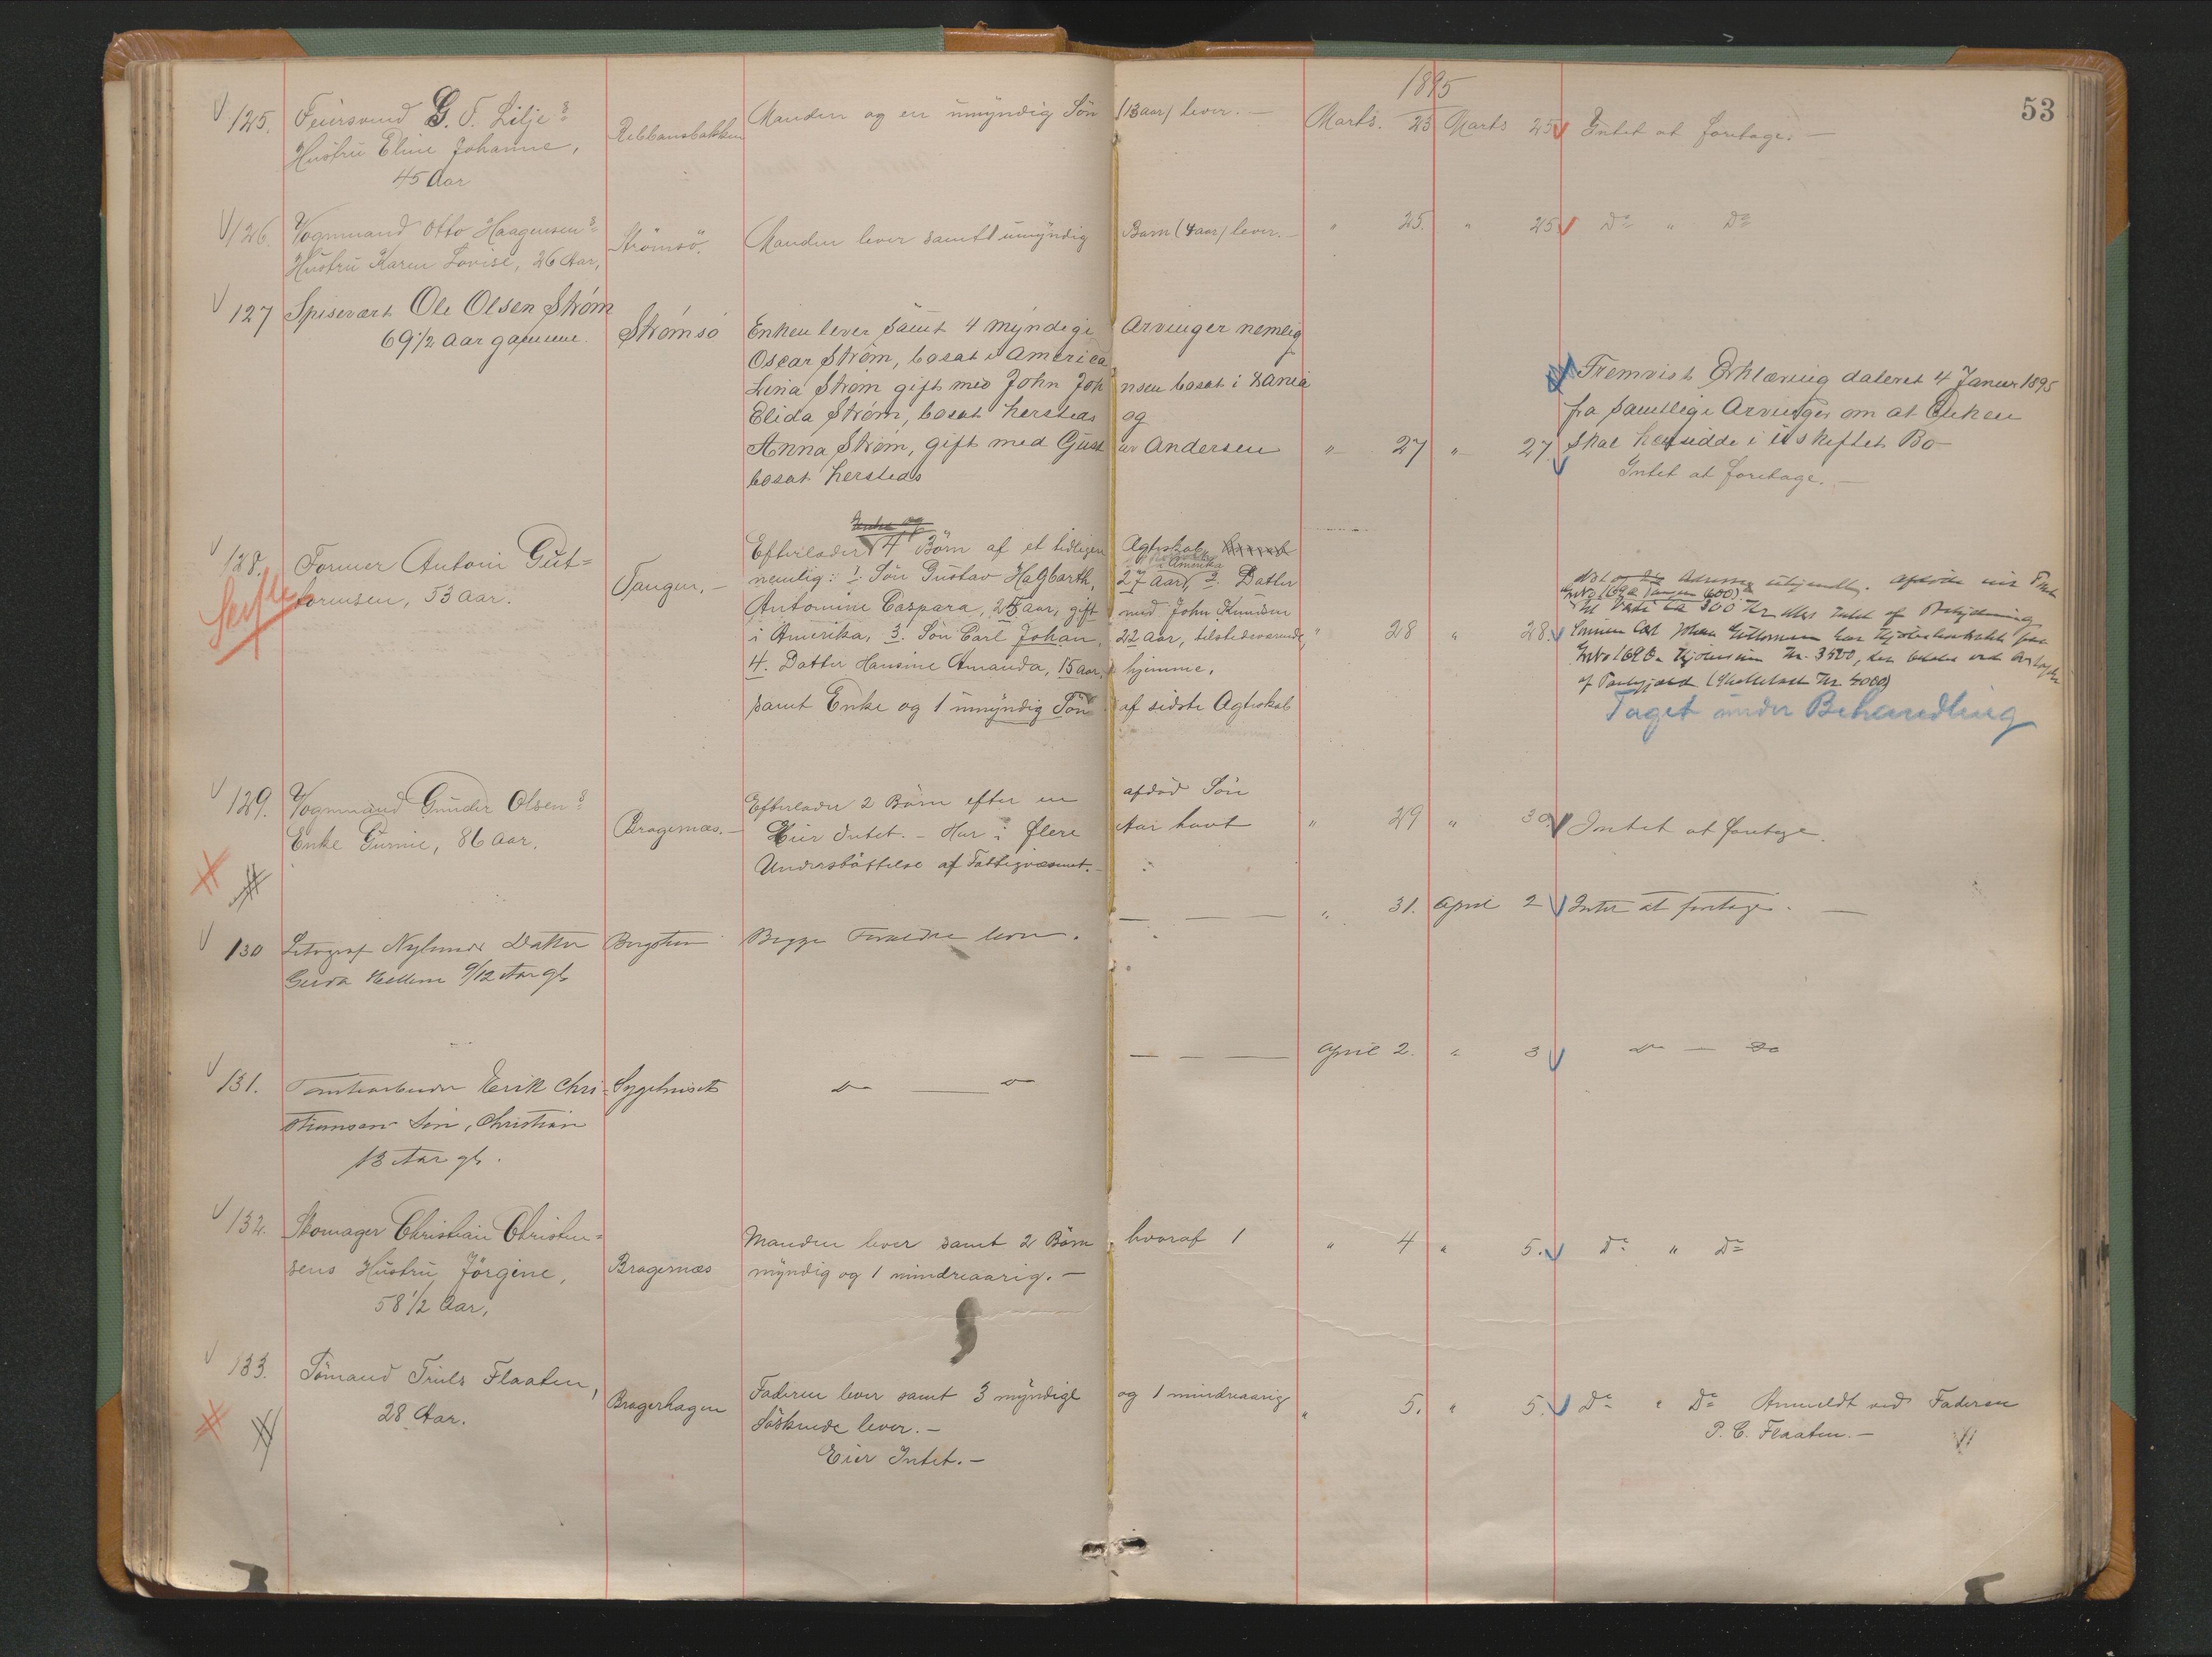 1895
53
125. Feiersvend G. T. Lilje's Rebbansbakken Manden og en umyndig Søn (13 aar) lever. — Marts. 23 Marts 25 Intet at foretage. —
Hustru Eline Johanne,
45 Aar
126. Vognmand Otto Haagensens Strömsö. Manden lever samt 1 umyndig Barn (4 aar) lever. — " 25. " 25 Do " Do
Hustru Karen Lovise, 26 Aar,
127 Spisevært Ole Olsen Strøm Strømsø Enken lever samt 4 myndige Arvinger nemlig
69 1/2 Aar gammel. Oscar Strøm, bosat i America
Lina Strøm gift med John Johnsen bosat i Dania
Elida Strøm, bosat hersteds og
Anna Strøm, gift med Gustav Andersen " 27 " 27
bosat hersteds
Fremvist Erklæring dateret 4 Januar 1895
fra samtlige Arvinger om at Enken
skal hensidde i uskiftet Bo
Intet at foretage. —
128. Former Antoni Gut= Tangen. — Efterlader 4 Börn af et tidligere Ægteskab
tormsen, 53 aar. nemlig: 1. Sön Gustav Hagbarth, 27 aar, i Amerika 2. Datter
Antonine Caspara, 25 aar, gift med John Knudsen
i Amerika, 3. Sön Carl Johan, 22 aar, tilstedeværende, " 28 " 28.
4. Datter Hansine Amanda, 15 aar, hjemme.
samt Enke og 1 umyndig Sön af sidste Ægteskab
Sönnen Carl Johan Guttormsen har
Taget under Behandling
129. Vognmand Gunder Olsens Bragernæs. — Efterlader 2 Börn efter en afdöd Sön
Enke Gunnie, 86 aar. Eier Intet. — Har i flere Aar havt " 29 " 30 Intet at foretage.
Understöttelse af Fattigvæsenet. —
130 Litograf Nylunds Datter Bergsten Begge Forældre lever. — — — " 31. April 2 Intet at foretage. —
Gerda 9/12 Aar gl.
131. Tomtearbeider Erik Chri= Sygehuset do — do — — — April 2. " 3 do — do
stiansens Sön, Christian
13 Aar gl.
132. Skomager Christian Christen= Bragernæs Manden lever samt 2 Börn, hvoraf 1 " 4 " 5. Do " Do
sens Hustru Jörgine, myndig og 1 mindreaarig. —
58 1/2 Aar,
133. Sömand Truls Flaaten, Bragerhagen Faderen lever samt 3 myndige og 1 mindreaarig " 5. " 5. Do " Do Anmeldt ved Faderen
28 Aar. Söskende lever. — P. C. Flaaten. —
Eier Intet. —